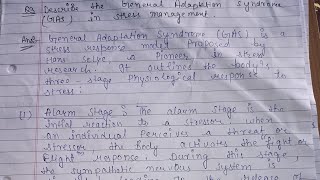 Q3 Describe the General Adaptation Syndrome
(GAS) in stress management.
Ans:- General Adaptation Syndrome (GAS) is a
stress response model proposed by
Hans Selye, a Pioneer in stress
research. It outlined the body's
three stage physiological response to
stress:
(1) Alarm Stage: The alarm stage is the
initial reaction to a stressor, when
an individual perceives a threat or
stressor the body activates the fight or
flight response. During this stage,
the sympathetic nervous system is
to the release of